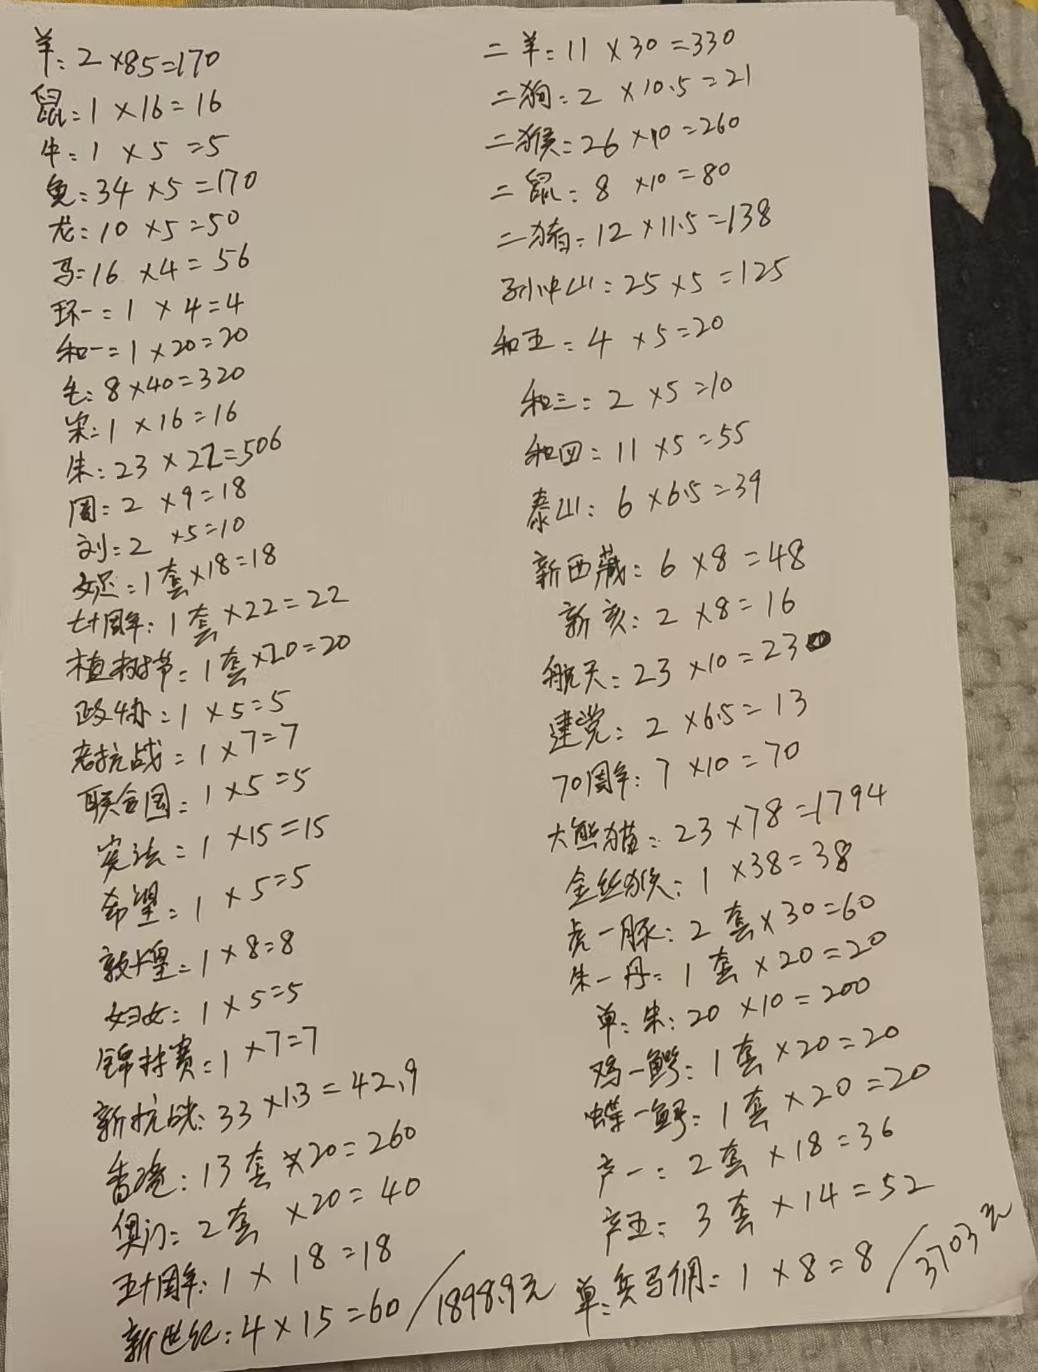 羊:2×85=170
鼠:1×16=16
牛:1×5=5
兔:34×5=170
龙:10×5=50
马:16×4=56
环一:1×4=4
和一:1×20=20
毛:8×40=320
宋:1×16=16
朱:23×22=506
周:2×9=18
刘:2×5=10
:1套×18=18
七十周年:1套×22=22
植树节:1套×20=20
政协:1×5=5
老抗战:1×7=7
联合国:1×5=5
宪法:1×15=15
希望:1×5=5
敦煌:1×8=8
妇女:1×5=5
锦标赛:1×7=7
新抗战:33×1.3=42.9
香港:13套×20=260
澳门:2套×20=40
五十周年:1×18=18
新世纪:4×15=60/1898.9元
二羊:11×30=330
二狗:2×10.5=21
二猴:26×10=260
二鼠:8×10=80
二猪:12×11.5=138
孙中山:25×5=125
和五:4×5=20
和三:2×5=10
和四:11×5=55
泰山:6×6.5=39
新西藏:6×8=48
新亥:2×8=16
航天:23×10=230
建党:2×6.5=13
70周年:7×10=70
大熊猫:23×78=1794
金丝猴:1×38=38
虎一豚:2套×30=60
朱一丹:1套×20=20
单:朱:20×10=200
鸡一鳄:1套×20=20
蝶一鲟:1套×20=20
产一:2套×18=36
辛五:3套×14=52
单:兵马俑:1×8=8/3703元